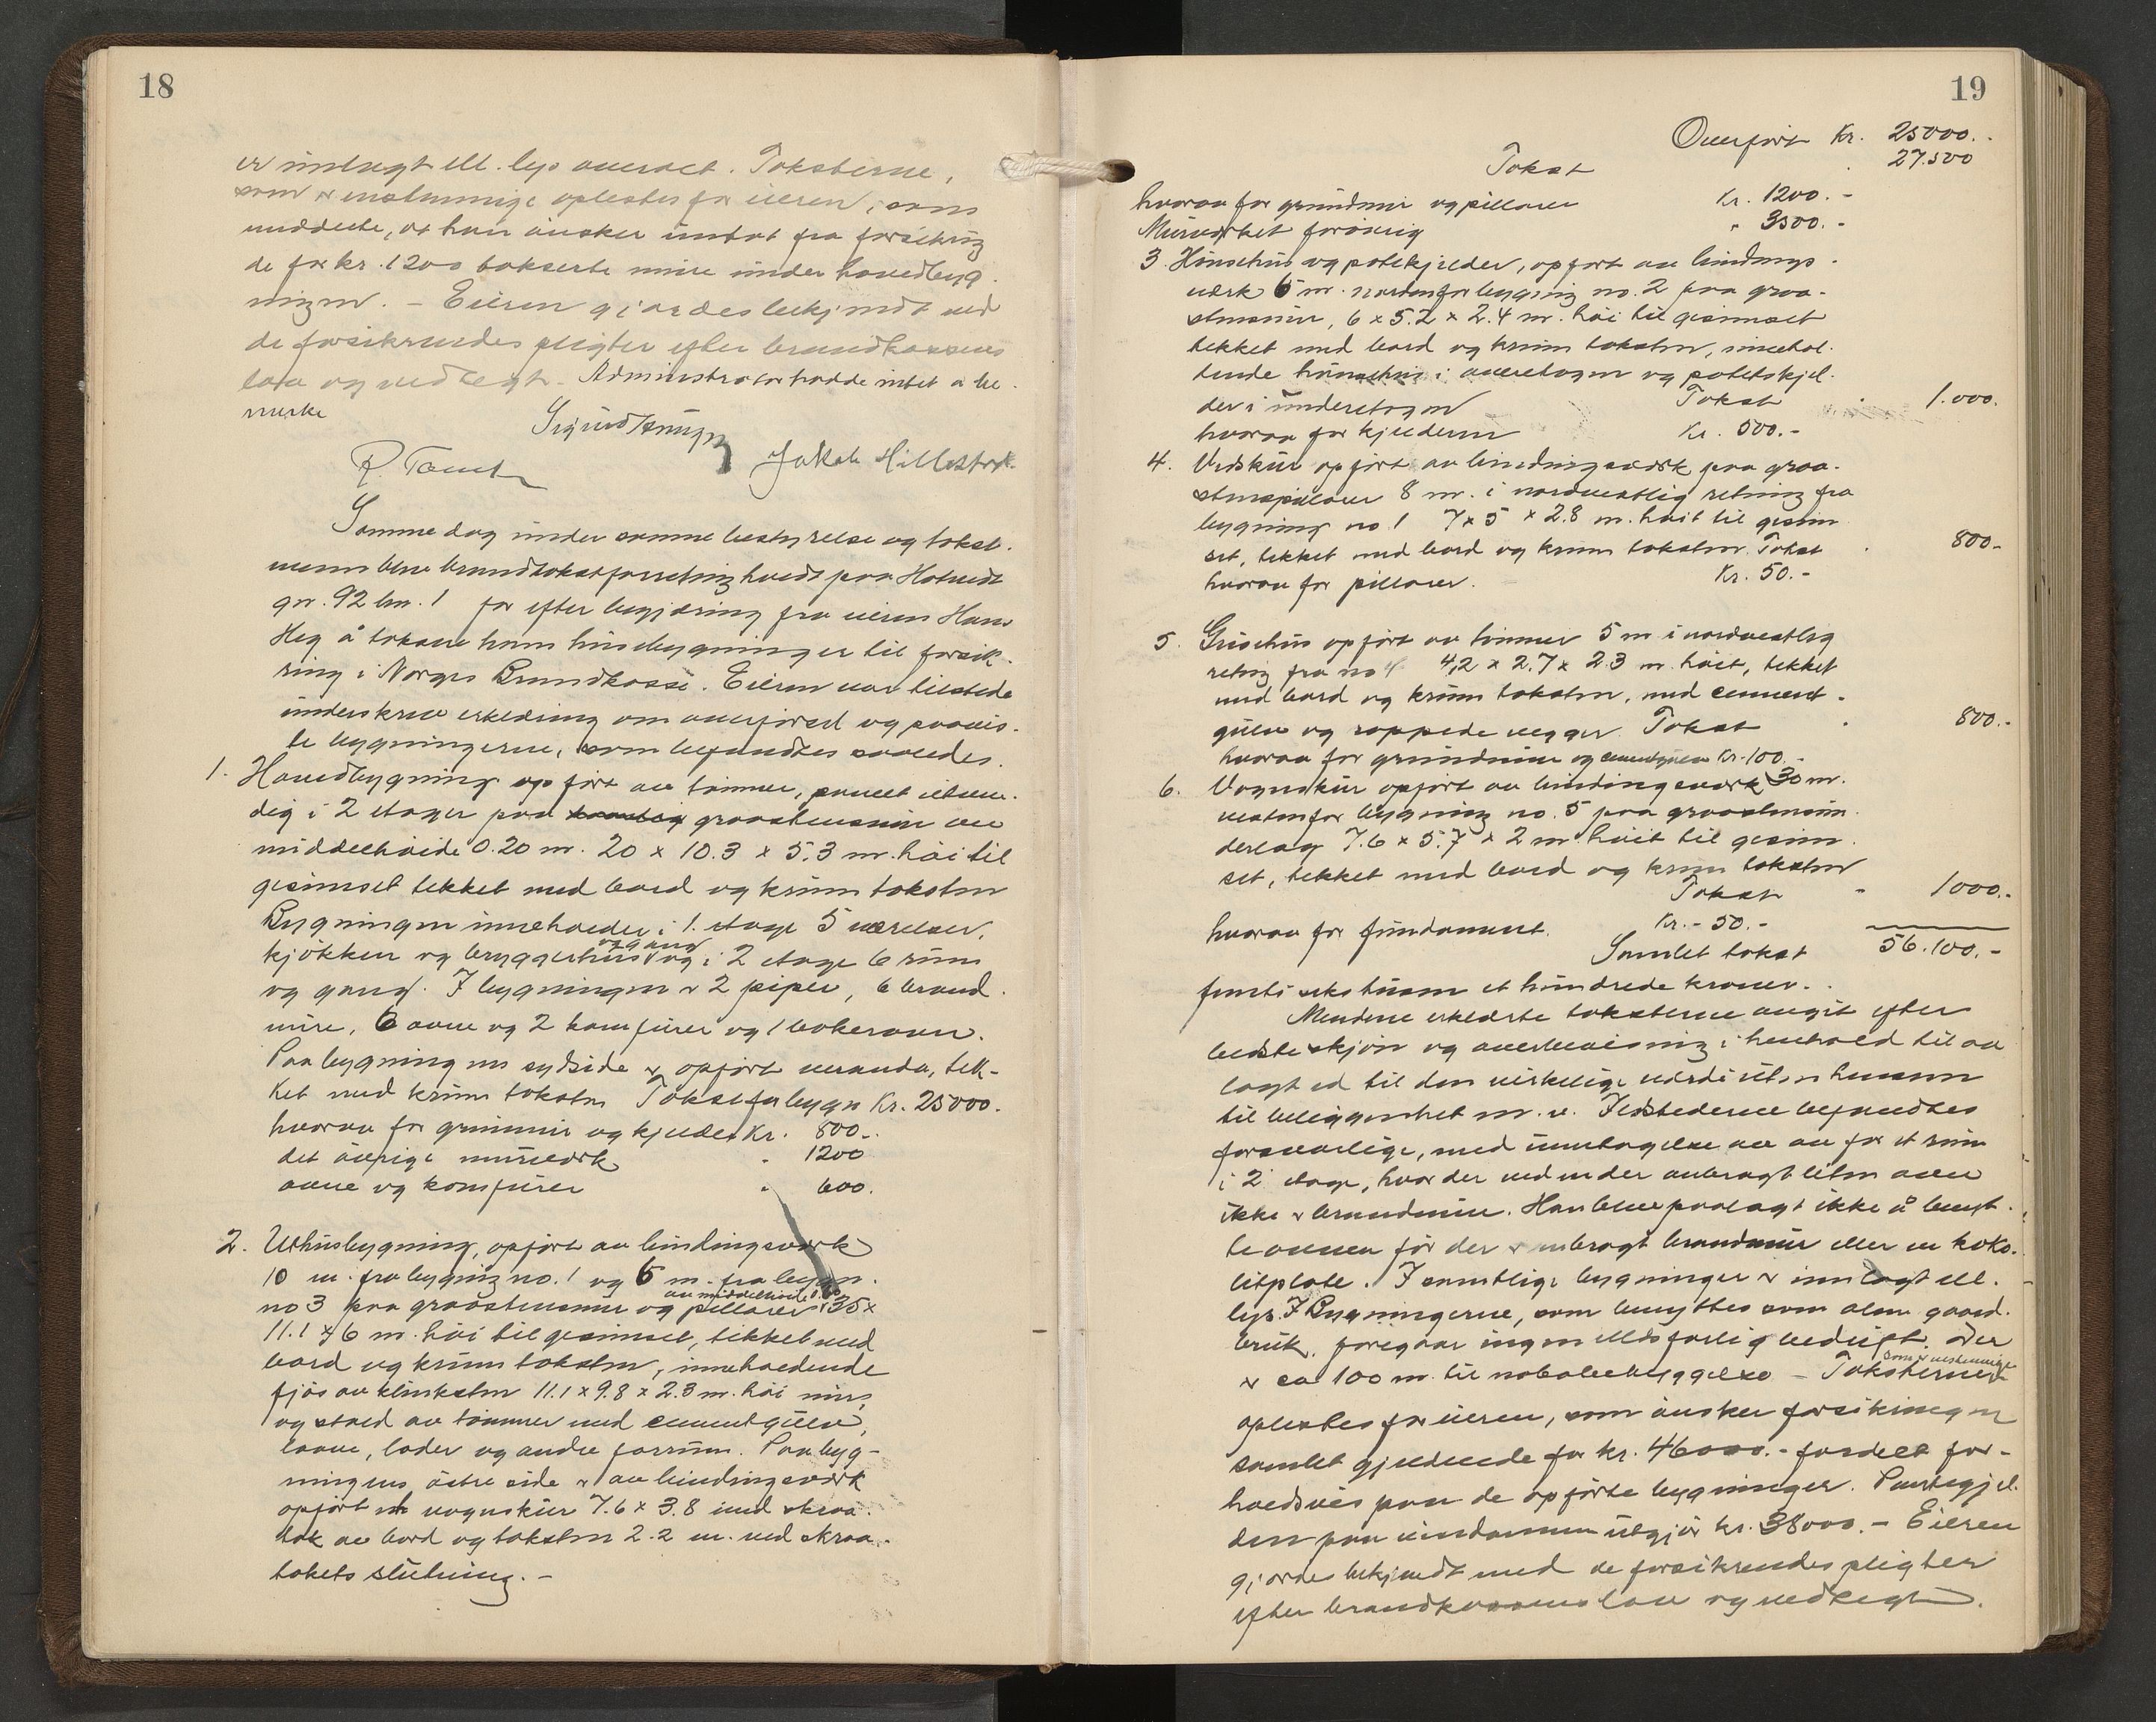 18
er indlagt ell. lys overalt. Taksterne,
som er enstemmige oplestes for eieren, som
meddelte, at han ønsker undtat fra forsikring
de for kr. 1200 takserte mure under hovedbyg-
ningen. - Eieren gjordes bekjendt med
de forsikrendes pligter efter brandkassens
lov og vedtegt. Administrator hadde intet a be-
merke
Jakob Hillestad
Samme dag under samme bestyrelse og takst-
menn blev brandtakstforretning holdt paa Hotvedt
gn. 92 bn. 1 for efter begjæring fra eieren Hans
Heg å taksere hans husebygninger til forsik-
ring i Norges Brandkasse. Eieren var tilstede
underskrev erklæring om overførsel og paavis-
te bygningerne, som befandtes saaledes.
1. Hovedbygning opført av tømmer, panelt utven-
dig i 2 etager paa graastensmur av
middelhøide 0.20 m. 20 x 10.3 x 5.3 m. høi til
gesimset tekket med bord og krum taksten
Bygningen inneholder i 1. etage 5 værelser,
kjøkken og bryggerhus og gang og i 2 etage 6 rum
og gang. I bygningen er 2 piper, 6 brand-
mure, 6 ovne og 2 komfurer og 1 bakerovn.
Paa bygningens sydside er opført veranda, tek-
ket med krum taksten Takst for bygn Kr. 25000.
hvorav for grunmur og kjelder Kr. 800.-
det øvrige murverk " 1200
ovne og komfurer " 600.
2. Uthusbygning, opført av bindingsverk
10 m. fra bygning no. 1 og 6 m. fra bygn.
no 3 paa graastensmur og pillarer av middelhøide 0.60 35 x
11.1 x 6 m. høi til gesimset, tekket med
bord og krum taksten, inneholdende
fjøs av klinksten 11.1 x 9.8 x 2.3 m. høi mur,
og stald av tømmer med cementgulv,
laave, lader og andre forrum. Paa byg-
ningens østre side er av bindingsverk
opført vognskur 7.6 x 3.8 med skraa-
tak av bord og taksten 2.2 m. ved skraa-
takets slutning. -
19
Overført Kr. 25000.-
Takst " 27.500
hvorav for grundmur og pillarer Kr. 1200.-
Murverket forøvrig " 3500.-
3. Hønsehus og potetkjelder, opført av bindings-
verk 6 m. nordenfor bygning no. 2 paa graa-
stensmur, 6 x 5.2 x 2.4 m. høi til gesimset
tekket med bord og krum taksten, innehol-
dende hønsehus i overetagen og potetskjel-
der i underetagen Takst " 1.000.
hvorav for kjelderen Kr. 500.-
4. Vedskur opført av bindingsverk paa graa-
stenspillarer 8 m. i nordvestlig retning fra
bygning no. 1 7 x 5 x 2.8 m. høit til gesim-
set, tekket med bord og krum taksten. Takst " 800-
hvorav for pillarer. Kr. 50.-
5. Grisehus opført av tømmer 5 m i nordvestlig
retning fra no 4 4,2 x 2.7 x 2.3 m. høit, tekket
med bord og krum taksten, med cement-
gulv og rappede vegger Takst " 800.-
hvorav for grundmur og cementgulv Kr. 100.-
6. Vognskur opført av bindingsverk 30 m.
vestenfor bygning no. 5 paa graastensun-
derlag 7.6 x 5.7 x 2 m høit til gesim-
set, tekket med bord og krum taksten
Takst " 1000.-
hvorav for fundament. Kr. - 50.-
Samlet takst 56.100.-
femti seks tusen et hundrede kroner.
Mendene erklærte taksterne avgit efter
bedste skjøn og overbevisning i henhold til av-
lagt ed til den virkelige værdi uten hensyn
til beliggenhet m. v. Ildstederne befandtes
forsvarlige, med unntagelse av av for et rum
i 2 etage, hvor der ved en der anbragt liten ovn
ikke er brandmur. Han blev paalagt ikke å benyt-
te ovnen før der er anbragt brandmur eller en koko-
litplate. I samtlige bygninger er innlagt ell.
lys. I Bygningerne, som benyttes som alm. gaard-
bruk, foregaar ingen ildsfarlig bedrift. Der
er ca 100 m. til nabobebyggelse - Taksterne som er enstemmige
oplestes for eieren, som ønsker forsikringen
samlet gjeldende for kr. 46000.- fordelt for-
holdsvis paa de opførte bygninger. Pantegjel-
den paa eiendommen utgjør kr. 38000.- Eieren
gjordes bekjendt med de forsikrendes pligter
efter brandkassens lov og vedtegt.